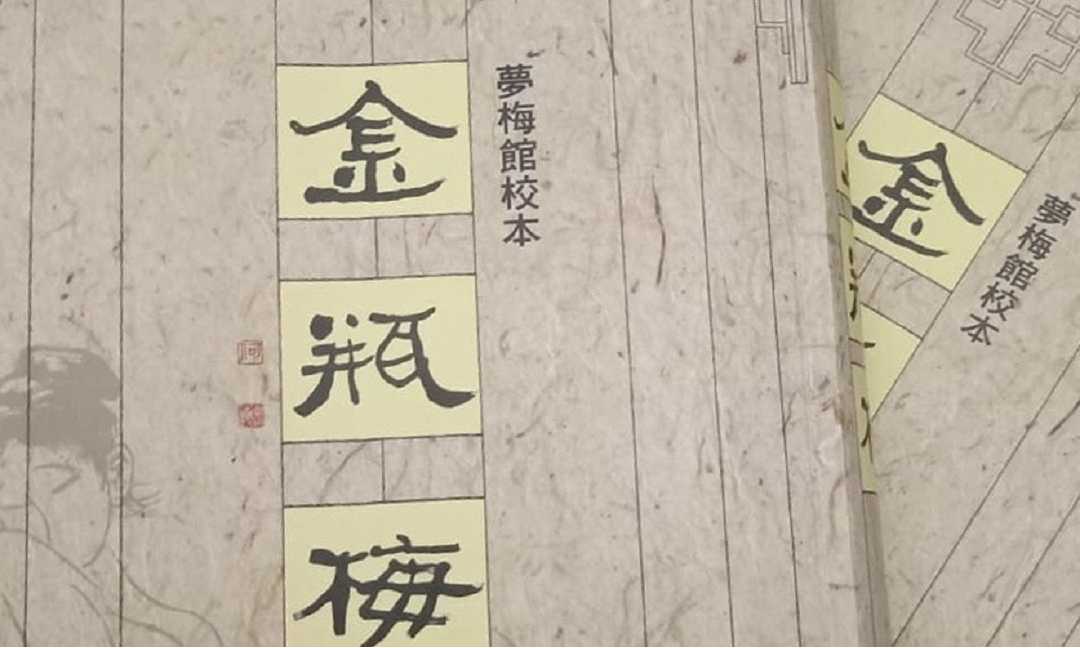 夢梅館校本
金瓶梅
金
夢梅館校本